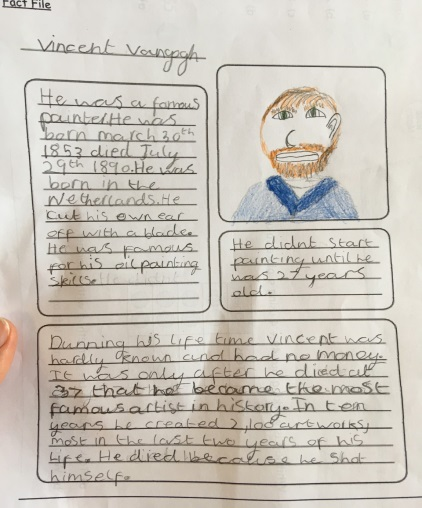 Fact File
Vincent Vangogh
He was a famous
painter.He was
born march 30th
1853 died July
29th 1890.He was
born in the
Netherlands.He
cut his own ear
off with a blade.
He was famous
for his oil painting
skills.
He didnt start
painting until he
was 27 years
old.
Dunning his life time Vincent was
hardly known and had no money.
It was only after he died at
37 that he became the most
famous artist in history. In ten
years he created 2,100 artworks,
most in the last two years of his
life. He died because he shot
himself.